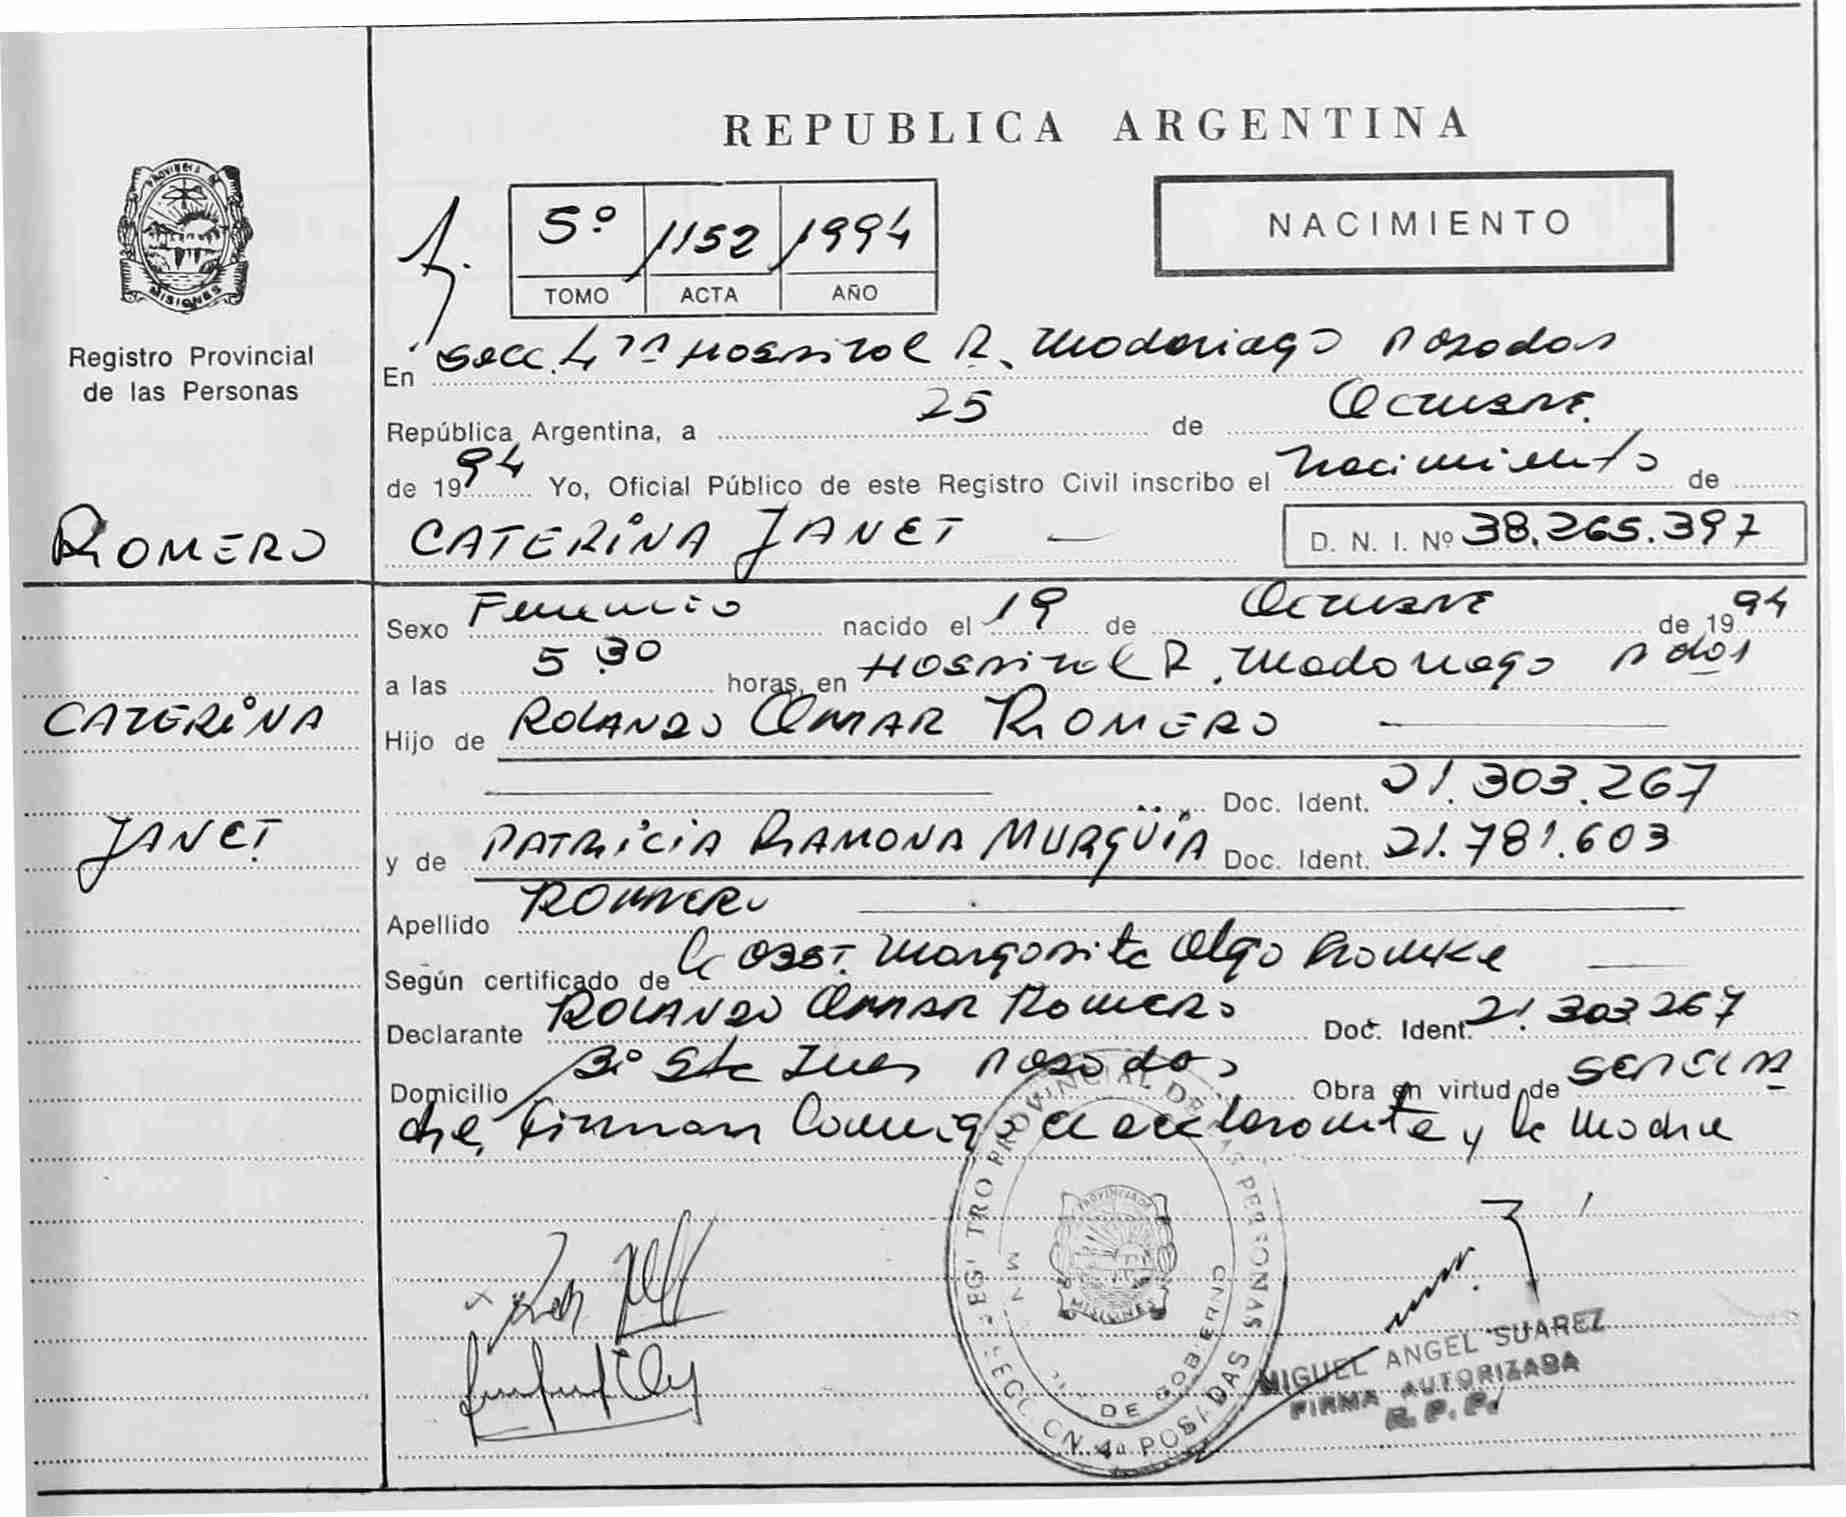 REPUBLICA ARGENTINA
PROVINCIA DE
MISIONES
Registro Provincial
de las Personas
5º 1152 1994
TOMO ACTA AÑO
NACIMIENTO
En Secc. 4 Hospital R. Madariaga Posadas
República Argentina, a 25 de Octubre
de 1994 Yo, Oficial Público de este Registro Civil inscribo el Nacimiento de
ROMERO
CATERINA JANET
D. N. I. Nº 38.265.397
Sexo Femenino nacido el 19 de Octubre de 1994
a las 5.30 horas, en Hospital R. Madariaga Pdas
CATERINA
Hijo de ROLANDO OMAR ROMERO
Doc. Ident. 21.303.267
JANET
y de PATRICIA RAMONA MURGÜIA Doc. Ident. 21.781.603
Apellido ROMERO
Según certificado de la Obst. Margarita Olga
Declarante ROLANDO OMAR ROMERO Doc. Ident. 21.303.267
Domicilio Bº Sta Ines Posadas Obra en virtud de
Firman Conmigo el declarante y la Madre
REGISTRO PROVINCIAL DE LAS PERSONAS
DE GOBIERNO
SECCION 4a POSADAS
PROVINCIA DE
MISIONES
MIGUEL ANGEL SUAREZ
FIRMA AUTORIZADA
R. P. P.